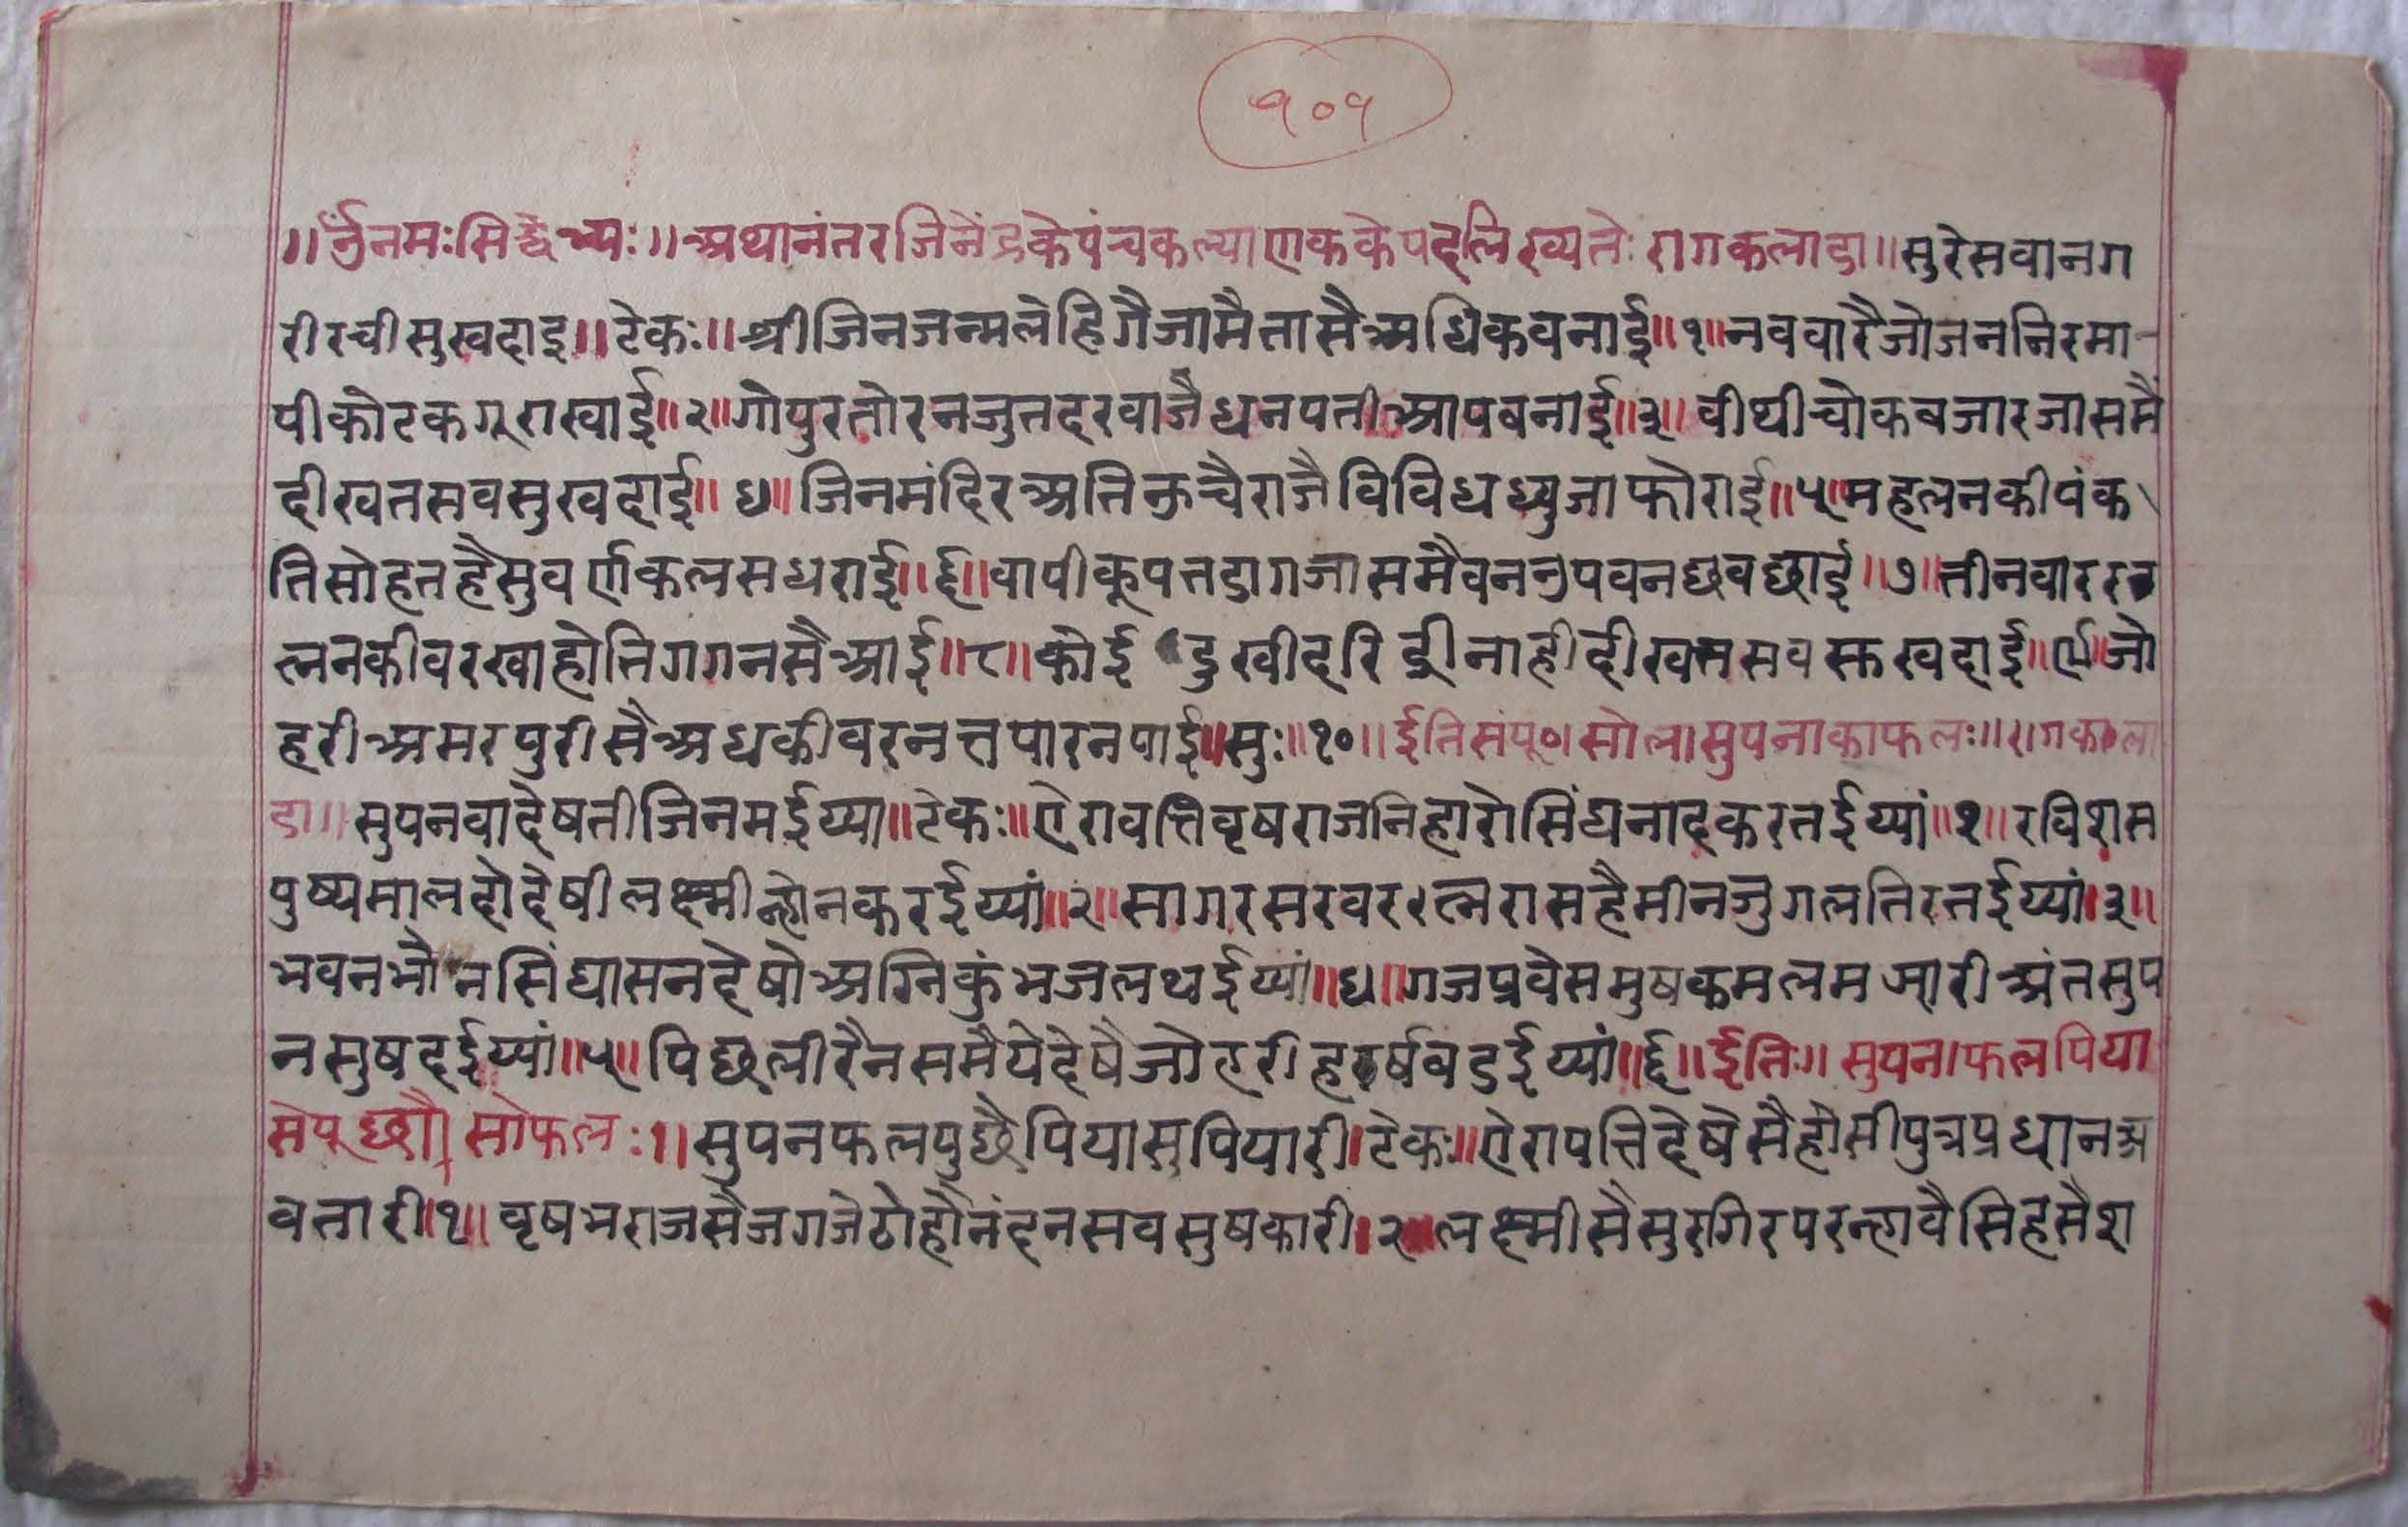 १०१
॥ ॐनमःसिद्धेभ्यः॥अथानंतरजिनेंद्रकेपंचकल्याणककेपदलिख्यतेः रागकलादा॥सुरेसवानग
रीरचीसुखदाइ॥टेकः॥श्रीजिनजन्मलेहिगैजामैतासैअधिकवनाई॥१॥नववारैजोजननिरमा-
पीकोटकगूराखाई॥२॥गोपुरतोरनजुतदरवाजैधनपतीआपबनाई॥३॥वीथीचोकबजारजासमैं
दीखतसवसुखदाई॥४॥जिनमंदिरअतिऊचैराजैविविधध्युजाफोराई॥५॥महलनकीपंक
तिसोहतहैसुवर्णकलसधराई॥६॥वापीकूपतडागजासमैवनउपवनछवछाई॥७॥तीनवारर
त्ननकीवरखाहोतिगगनसैआई॥८॥कोई दुखीदरिद्रीनाहीदीखतसवसुखदाई॥९॥जो
हरीअमरपुरीसैअधकीवरनतपारनपाई॥सुः॥१०॥ईतिसंपू०।सोलासुपनाकाफलः॥रागकला
दा॥सुपनवादेषतीजिनमईय्या॥टेकः॥ऐरावत्तिवृषराजनिहारोसिंघनादकरतईय्यां॥१॥रविशस
पुष्यमालदोदेषीलक्ष्मीन्होनकरईय्यां॥२॥सागरसरवररत्नरासहैमीनजुगलतिरतईय्यां॥३॥
भवनभौनसिंघासनदेषोअग्निकुंभजलथईय्यां॥४॥गजप्रवेसमुषकमलमझारीअंतसुप
नसुषदईय्यां॥५॥पिछलीरैनसमैयेदेषैजोहरीहर्षबडईय्यां॥६॥ईतिः॥सुपनाफलपिया
सेपूछौ।सोफलः॥सुपनफलपुछैपियासुपियारी॥टेकः॥ऐरापत्तिदेषैसैहोसीपुत्रप्रधानअ
वतारी॥१॥वृषभराजसैजगजेठोहोनंदनसवसुषकारी॥२॥लक्ष्मीसैसुरगिरपरन्हावैसिहसैश